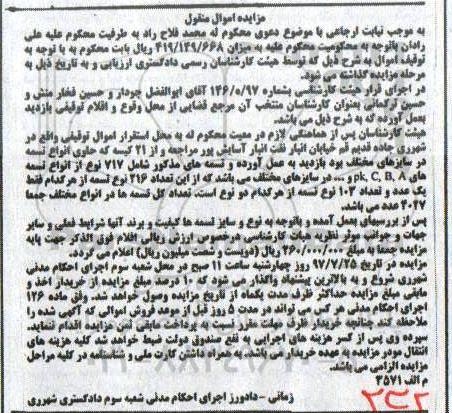 مزایده اموال منقول
به موجب نیابت ارجاعی با موضوع دعوی محکوم له محمد فلاح راد به طرفیت محکوم علیه علی
رادان باتوجه به محکومیت محکوم علیه به میزان ۴۱۹/۱۴۹/۶۶۸ ریال بابت محکوم به با توجه به
توقیف اموال به شرح ذیل که توسط هیئت کارشناسان رسمی دادگستری ارزیابی و به تاریخ ذیل به
مرحله مزایده گذاشته می شود.
در اجرای قرار هیئت کارشناسی بشماره ۱۴۶/۰/۹۷ آقای ابوالفضل جودار و حسین فخار منش و
حسین ترکمانی بعنوان کارشناسان منتخب آن مرجع قضایی از محل وقوع و اقلام توقیفی بازدید
بعمل آورده که به شرح ذیل می باشد.
هیئت کارشناسان پس از هماهنگی لازم در معیت محکوم له به محل استقرار اموال توقیفی واقع در
شهرری جاده قدیم قم خیابان انبار نفت انبار آسایش پور مراجعه و از ۲۱ کیسه که حاوی انواع تسمه
در سایزهای مختلف بود بازدید به عمل آورده و تسمه های مذکور شامل ۷۱۷ نوع از انواع تسمه
های pk, C, B, A و ... در سایزهای مختلف می باشد که از این تعداد ۲۱۶ نوع تسمه از هرکدام فقط
یک عدد و تعداد ۱۰۳ نوع تسمه از هرکدام دو نوع است. تعداد کل تسمه ها در انواع مختلف جمعا
۴۰۴۷ عدد می باشد.
پس از بررسیهای بعمل آمده و باتوجه به نوع و سایز تسمه ها کیفیت و برند آنها شرایط فعلی و سایر
جهات و جوانب موثر نظریه هیات کارشناسی درخصوص ارزش ریالی اقلام فوق الذکر جهت پایه
مزایده جمعا به مبلغ ۲۶۰/۰۰۰/۰۰۰ ریال (دویست و شصت میلیون ریال) اعلام می گردد.
مزایده در تاریخ ۹۷/۷/۲۵ روز چهارشنبه ساعت ۱۱ صبح در محل شعبه سوم اجرای احکام مدنی
شهرری شروع و به بالاترین پیشنهاد واگذار می شود که ۱۰ درصد مبلغ مزایده از خریدار اخذ و
مابقی مبلغ مزایده حداکثر ظرف مدت یکماه از تاریخ مزایده وصول خواهد شد. وفق ماده ۱۲۶
اجرای احکام مدنی هر کس می تواند در مدت ۵ روز قبل از موعد فروش اموالی که آگهی شده را
ملاحظه کند. چنانچه خریدار ظرف مهلت مقرر نسبت به پرداخت مابقی ثمن مزایده اقدام ننماید.
سپرده وی پس از کسر هزینه های اجرایی به نفع صندوق دولت ضبط خواهد شد کلیه هزینه های
انتقال مورد مزایده به عهده خریدار می باشد. به همراه داشتن کارت ملی و شناسنامه در کلیه مراحل
مزایده الزامی می باشد.
م الف ۳۵۷۱
زمانی - دادورز اجرای احکام مدنی شعبه سوم دادگستری شهرری